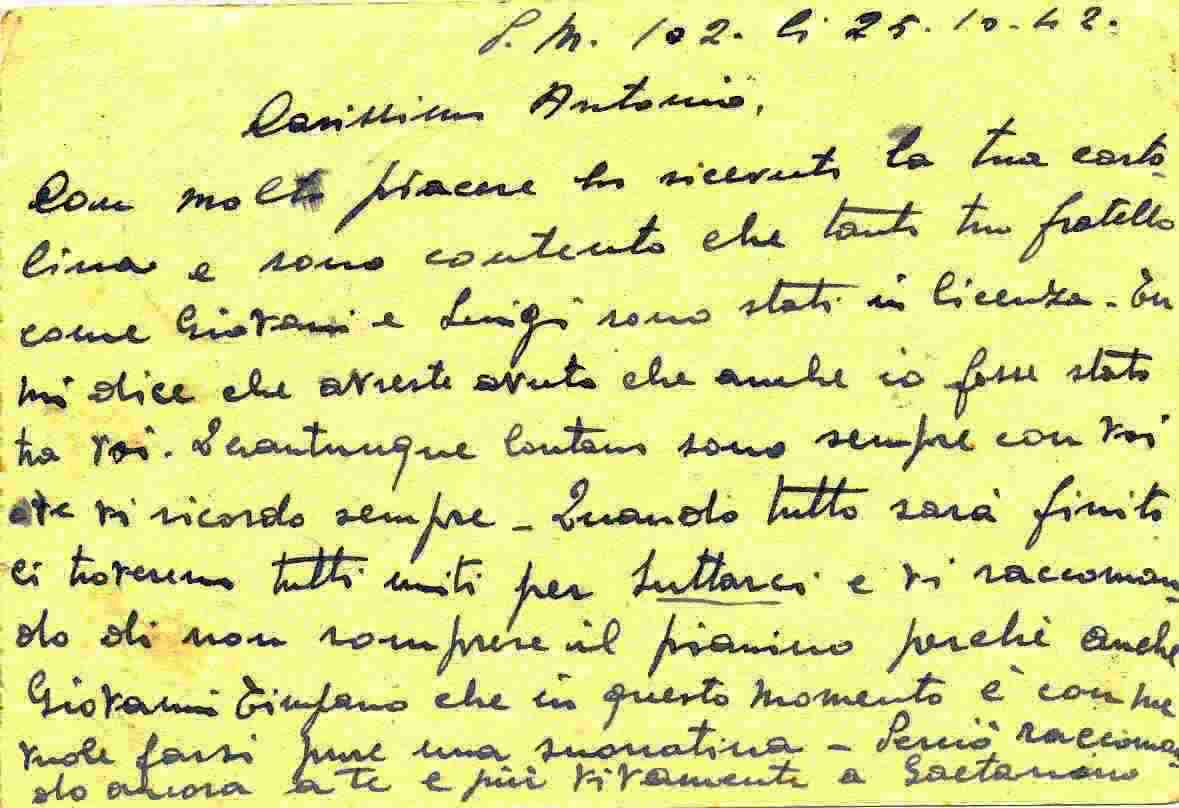 P.M. 102. li 25.10.42.
Carissimo Antonio,
Con molto piacere ho ricevuto la tua carto
lina e sono contento che tanto tuo fratello
come Giovanni e Luigi sono stati in licenza - Tu
mi dice che avreste avuto che anche io fosse stato
tra voi. Quantunque lontano sono sempre con voi
e vi ricordo sempre - Quando tutto sarà finito
ci troveremo tutti uniti per e vi raccoman-
do di non rompere il pianino perché anche
Giovanni Timpano che in questo momento è con me
vuole farsi pure una suonatina - Perciò raccoman
do ancora a te e più vivamente a Gaetanino